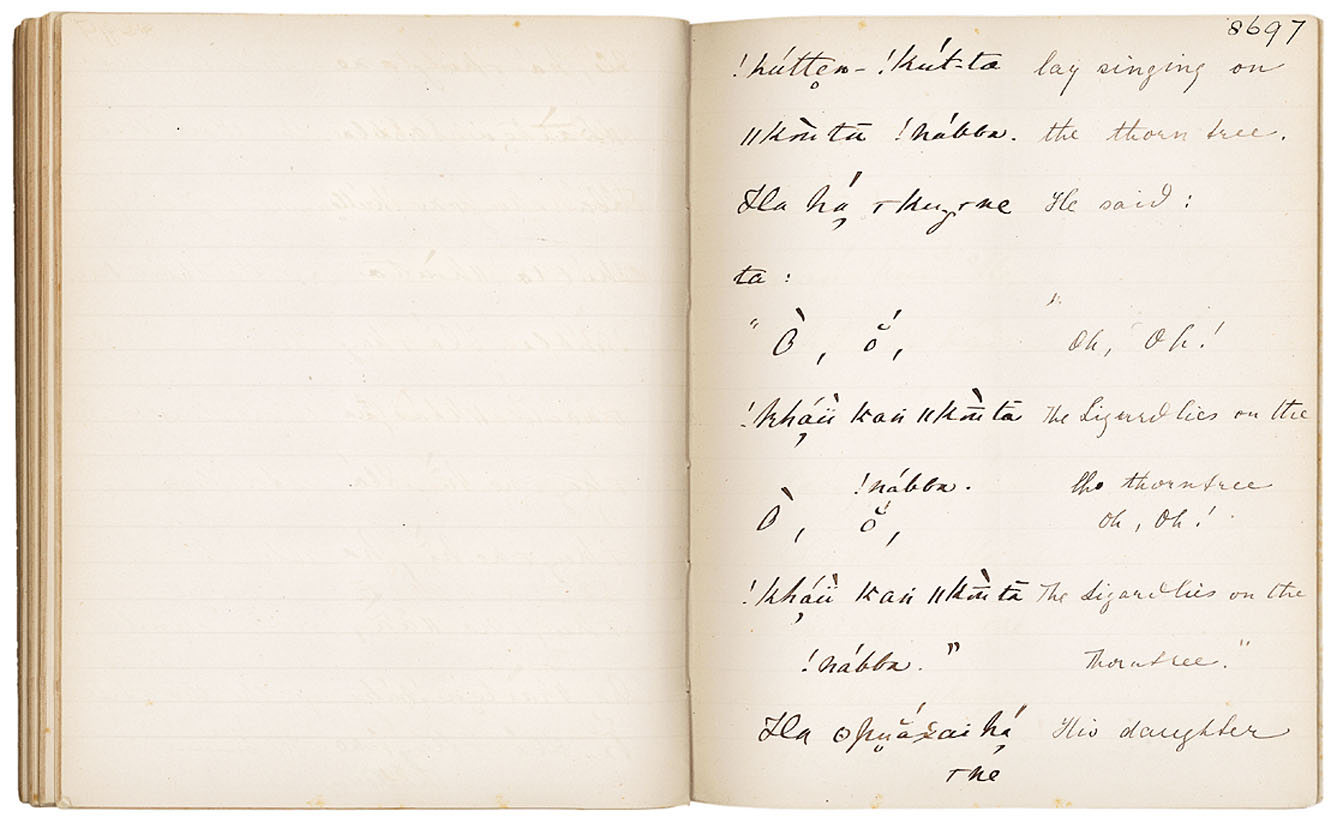 8697
!húttẹn- !kút-ta lay singing on
ǁkṑïn ta !nábba. the thorn tree.
Ha há̩ ǀkuǀne He said:
ta:
"Ò, ŏ́, "Oh, Oh!
!khá̩ü kań ǁkṑïn tā The Lizard lies on the
!nábba. the thorntree
Ò, ŏ́, Oh, Oh!
!khá̩ü kań ǁkṑïn tā The Lizard lies on the
!nábba." thorntree."
Ha ʘpuắxai há̩ His daughter
ǀne